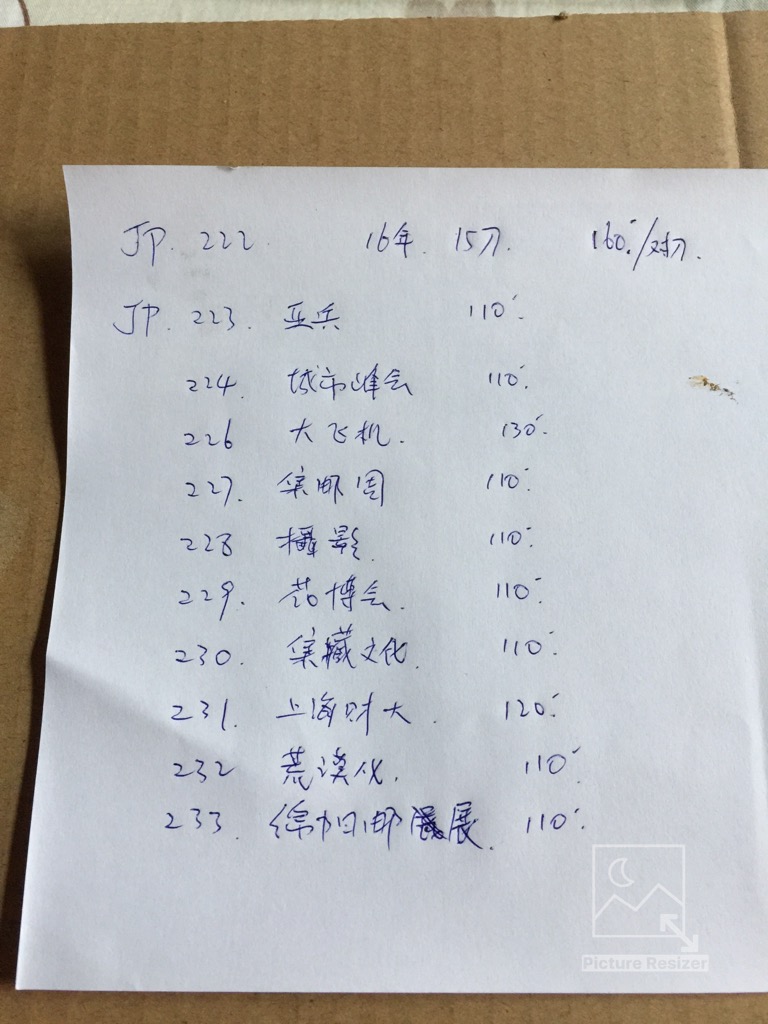 JP. 222. 16年. 15刀. 160.-/对刀.
JP. 223. 亚兵 110.-
224. 城市峰会 110.-
226 大飞机. 130.-
227. 集邮周 110.-
228 摄影. 110.-
229. 药博会. 110.-
230. 集藏文化. 110.-
231. 上海财大. 120.-
232 荒漠化. 110.-
233. 邮展. 110.-
Picture Resizer